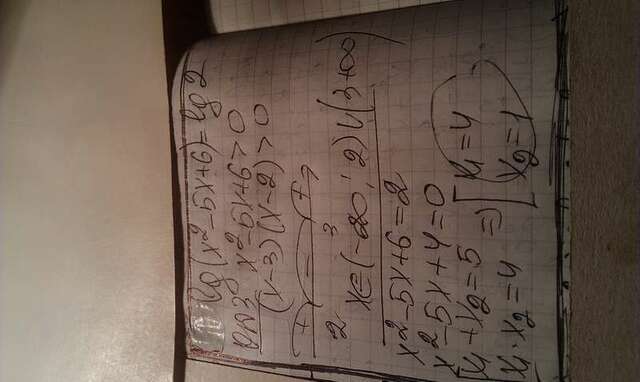 lg(x²-5x+6)=lg2
ОДЗ x²-5x+6>0
(x-3)(x-2)>0
+ - +
2 3
x∈(-∞; 2)∪(3+∞)
x²-5x+6=2
x²-5x+4=0
x₁+x₂=5 ⇒ [x₁=4
x₁·x₂=4 x₂=1